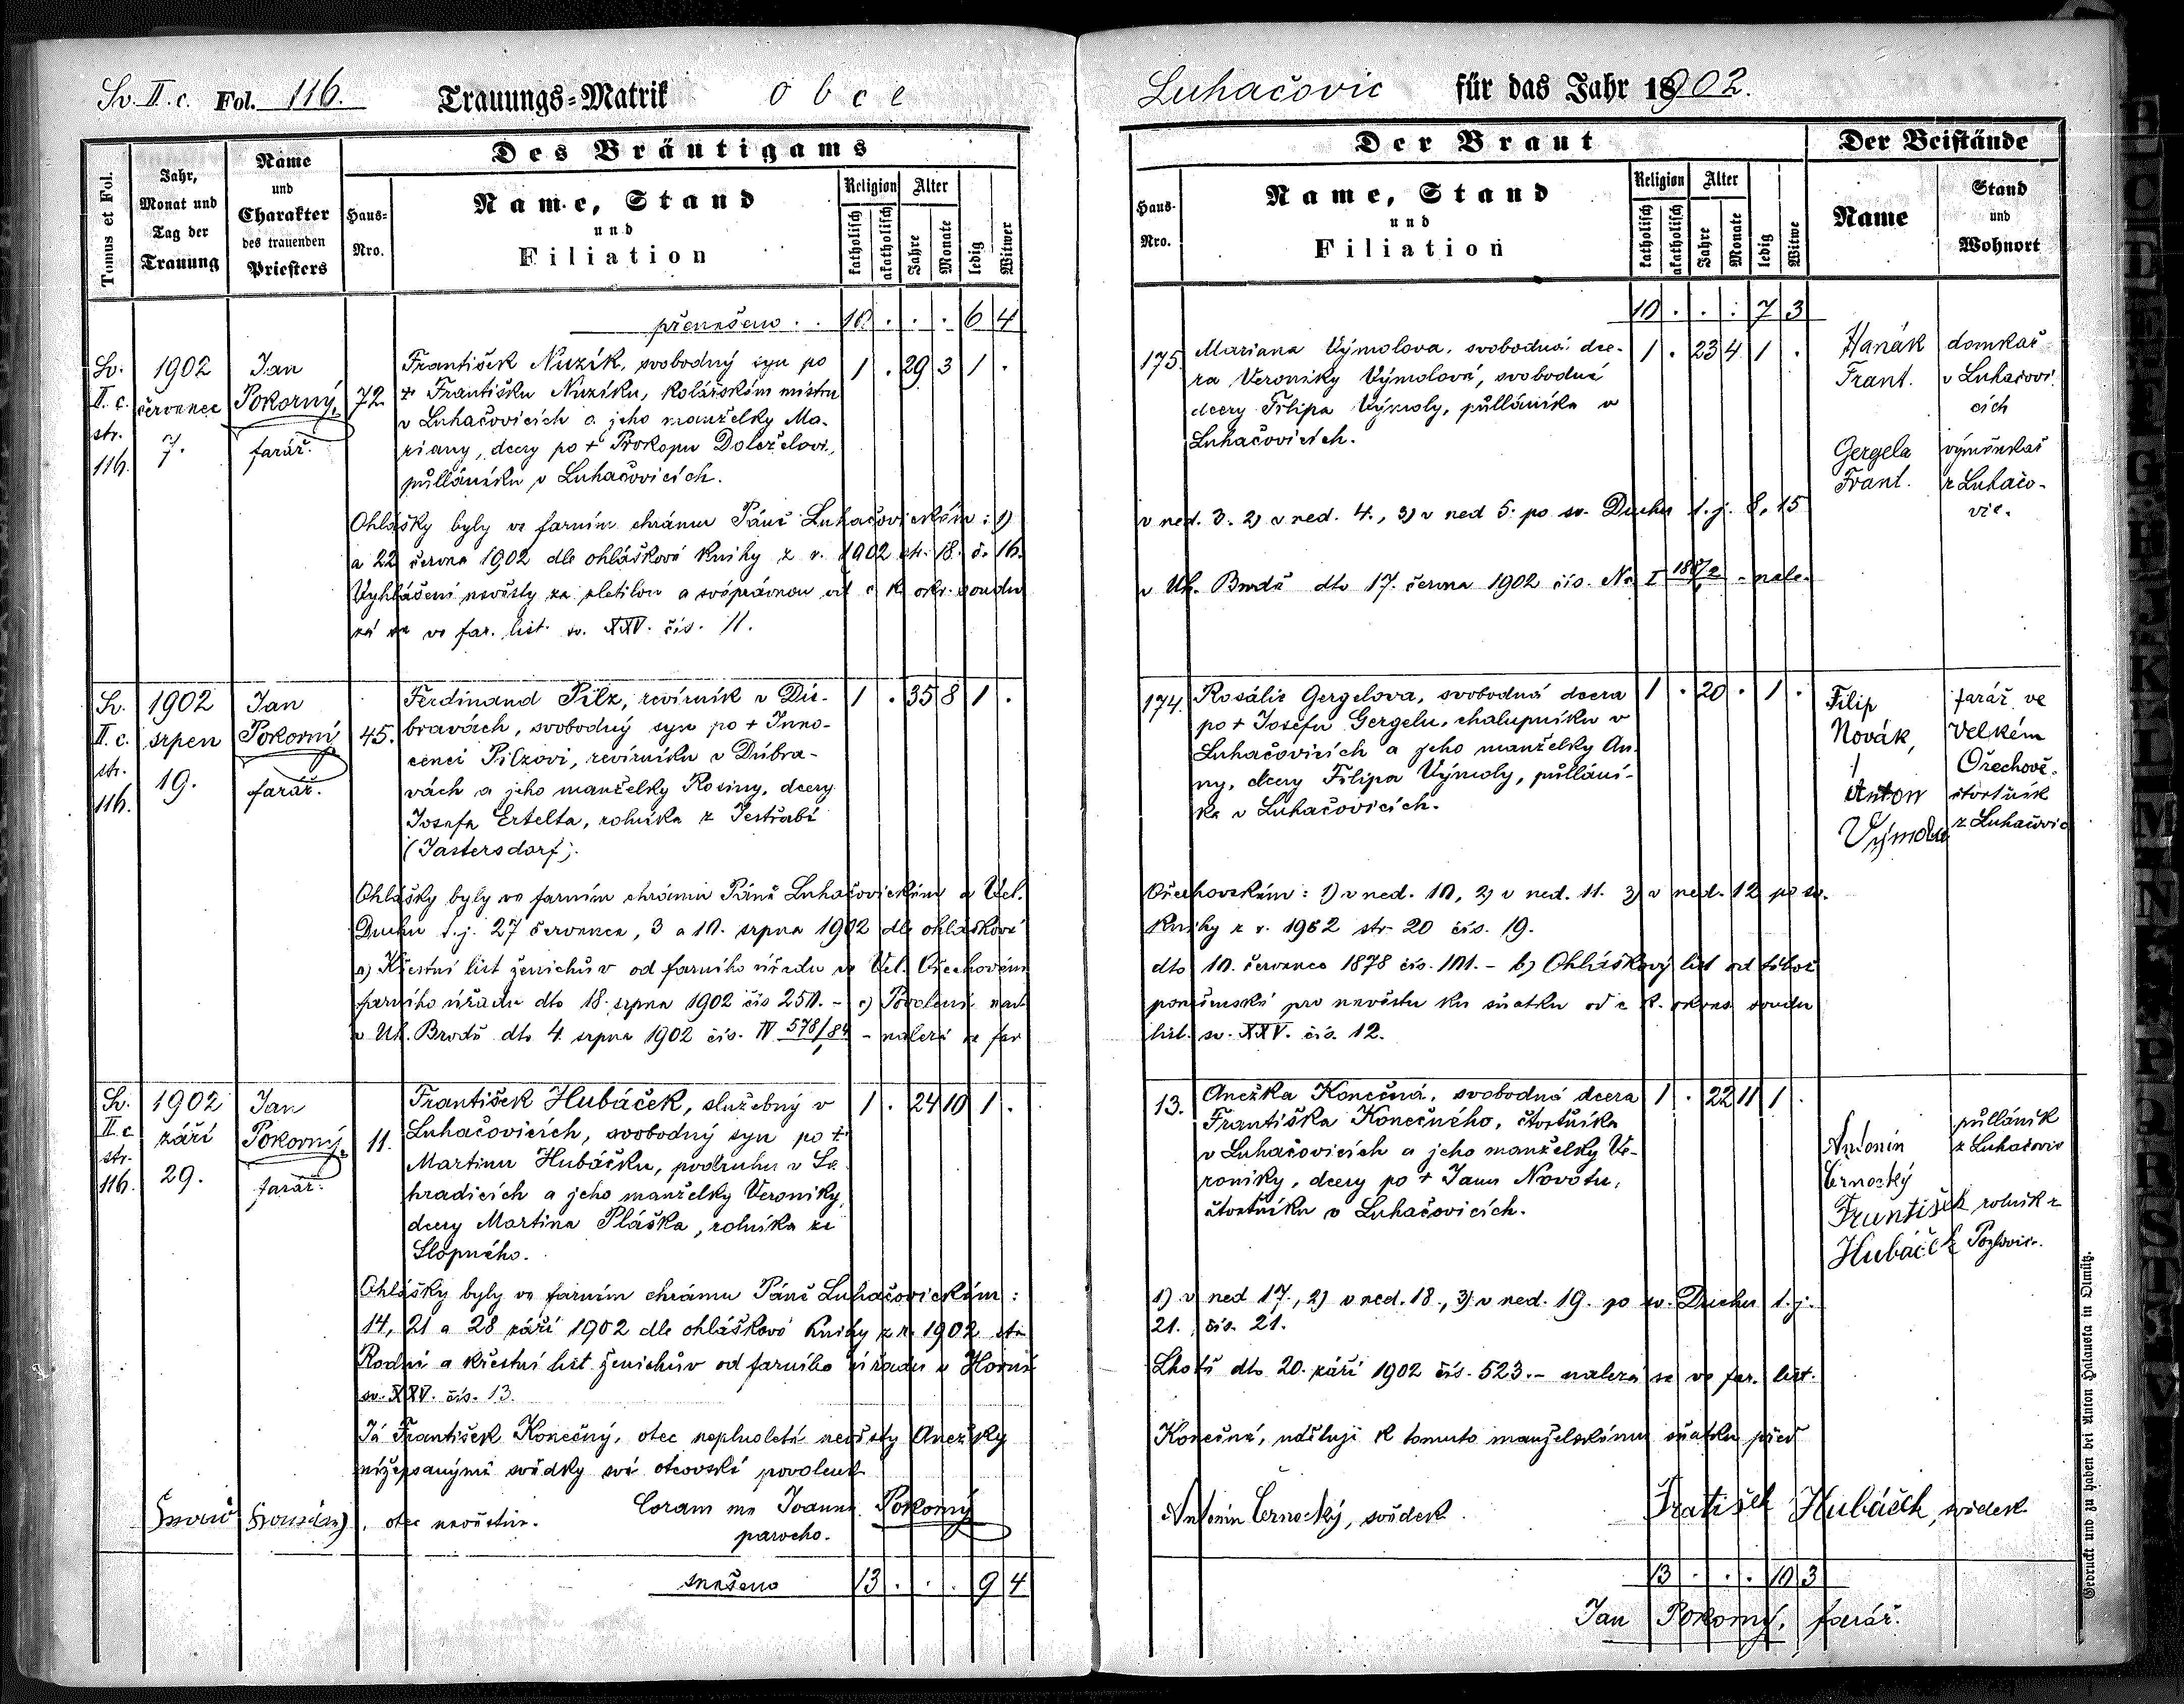 Sv. II. c. Fol. 116. Trauungs=Matrik obce
Tomus et Fol.
Jahr, Monat und Tag der Trauung
Name und Charakter des trauenden Priesters
Des Bräutigams
Haus=Nro.
Name, Stand
und
Filiation
Religion
katholisch
akatholisch
Alter
Jahre
Monate
ledig
Witwer
přenešeno . . 10 . . . 6 4
Sv. II. c. str. 116.
1902 červenec 7.
Jan Pokorný, farář.
72
František Nuzík, svobodný syn po
† Františku Nuzíku, kolářském mistru
v Luhačovicích a jeho manželky Ma-
riany, dcery po † Prokopu Doleželovi,
půlláníku v Luhačovicích.
1 . 29 3 1 .
Ohlášky byly ve farním chrámu Páně Luhačovickém: 1)
a 22 června 1902 dle ohláškové knihy z r. 1902 str. 18. č. 16.
Vyhlášení nevěsty za zletilou a svéprávnou od c. k. okr. soudu
zá se ve far. list. sv. XXV. čís. 11.
Sv. II. c. str. 116.
1902 srpen 19.
Jan Pokorný farář.
45.
Ferdinand Pilz, revírník v Dú-
bravách, svobodný syn po † Inno-
cenci Pilzovi, revírníku v Dúbra-
vách a jeho manželky Rosiny, dcery
Josefa Ertelta, rolníka z Jestřabí
(Jastersdorf).
1 . 35 8 1 .
Ohlášky byly ve farním chrámu Páně Luhačovickém a Vel.
Duchu t. j. 27 července, 3 a 10. srpna 1902 dle ohláškové
a) Křestní list ženichův od farního úřadu ve Vel. Ořechovém
farního úřadu dto 18. srpna 1902 čís 250. - c) Povolení nad-
v Uh. Brodě dto 4. srpna 1902 čís. IV 578/84 - nalezá se far
Sv. II. c str. 116.
1902 září 29.
Jan Pokorný, farář.
11.
František Hubáček, služebný v
Luhačovicích, svobodný syn po †
Martinu Hubáčku, podruhu v Se-
hradicích a jeho manželky Veroniky,
dcery Martina Pláška, rolníka ze
Slopného.
1 . 24 10 1 .
Ohlášky byly ve farním chrámu Páně Luhačovickém:
14, 21 a 28 září 1902 dle ohláškové knihy z r. 1902 str
Rodní a křestní list ženichův od farního úřadu v Horní
sv. XXV. čís. 13.
Já František Konečný, otec neplnoleté nevěsty Anežky
nížepsanými svědky své otcovské povolení
, otec nevěstin. Coram me Joanne Pokorný
parocho.
snešeno 13 . . . 9 4
Luhačovic für das Jahr 18902.
Der Braut
Haus-Nro.
Name, Stand
und
Filiation
Religion
katholisch
akatholisch
Alter
Jahre
Monate
ledig
Witwe
Der Beistände
Name
Stand und Wohnort
10 . . . 7 3
175.
Mariana Výmolova, svobodná dce-
ra Veroniky Výmolové, svobodné
dcery Filipa Výmoly, půlláníka v
Luhačovicích.
1 . 23 4 1 .
Hanák Frant.
domkař v Luhačovicích
Gergela Frant.
výměnkář z Luhačovic.
v ned. 3. 2) v ned. 4., 3) v ned 5. po sv. Duchu t. j. 8, 15
v Uh. Brodě dto 17. června 1902 čís. Nc I - nale-
174.
Rosálie Gergelova, svobodná dcera
po † Josefu Gergelu, chalupníku v
Luhačovicích a jeho manželky An-
ny, dcery Filipa Výmoly, půllání-
ka v Luhačovicích.
1 . 20 . 1 .
Filip Novák,
farář ve Velkém Ořechově.
Anton Výmola
čtvrtník z Luhačovic
Ořechovském: 1) v ned. 10, 2) v ned. 11. 3) v ned. 12 po sv.
Knihy z r. 1902 str. 20 čís. 19.
dto 10. července 1878 čís. 101. - b) Ohláškový list od téhož
poručenské pro nevěstu ku sňatku od c. k. okres. soudu
list. sv. XXV. čís. 12.
13.
Anežka Konečná, svobodná dcera
Františka Konečného, čtvrtníka
v Luhačovicích a jeho manželky Ve-
roniky, dcery po † Janu Novotu,
čtvrtníku v Luhačovicích.
1 . 22 11 1 .
Antonín Černocký
půlláník z Luhačovic
František Hubáček
rolník z Pozlovic.
1) v ned 17., 2) v ned. 18., 3) v ned. 19. po sv. Duchu t. j.
21. čís. 21.
Lhotě dto 20. září 1902 čís. 523. - nalezá se ve far. list.
Konečné, uděluji k tomuto manželskému sňatku před
Antonín Černocký, svědek Fratišek Hubáček, svědek
13 . . . 10 3
Jan Pokorný, farář.
Gedruckt und zu haben bei Anton Halauska in Olmütz.